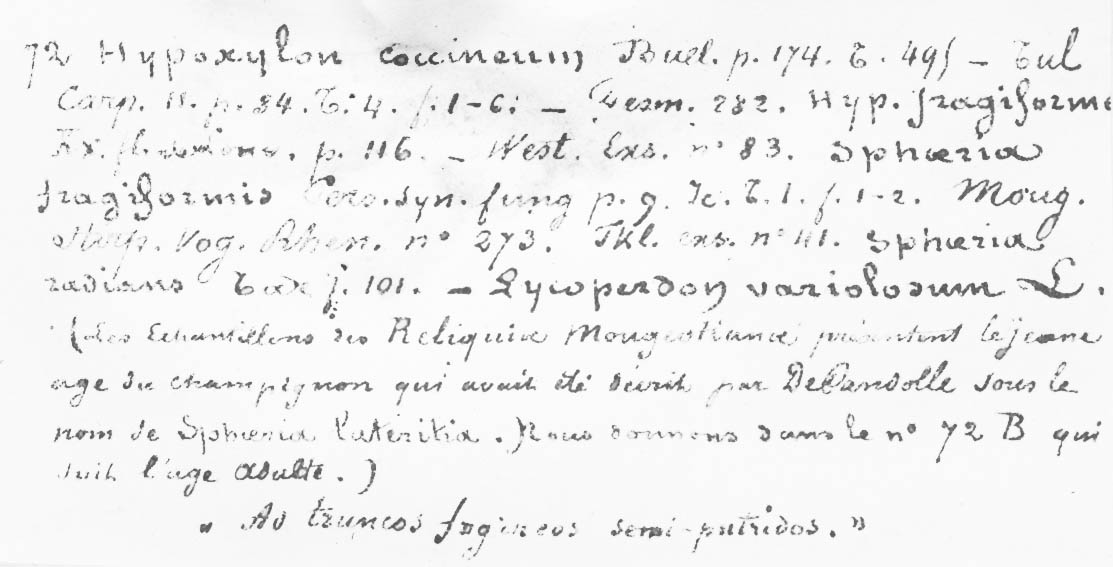 72 Hypoxylon coccineum Bull. p. 174. t. 495 — Tul
Carp. II. p. 34. t. 4. f. 1-6. — Desm. 282. Hyp. fragiforme
p. 116. — West. Exs. n° 83. Sphæria
fragiformis Pers. Syn. fung p. 9. Ic. t. 1. f. 1-2. Moug.
Stirp. Vog. Rhen. n° 273. Fkl. exs. n° 41. Sphæria
radians Tode f. 101. — Lycoperdon variolosum L.
(Les Echantillons des Reliquiæ Mougeotianæ présentent le jeune
age du champignon qui avait été décrit par DeCandolle sous le
nom de Sphæria lateritia.) Nous donnons dans le n° 72 B qui
suit l'age adulte.)
„ Ad truncos fagineos semi-putridos. "